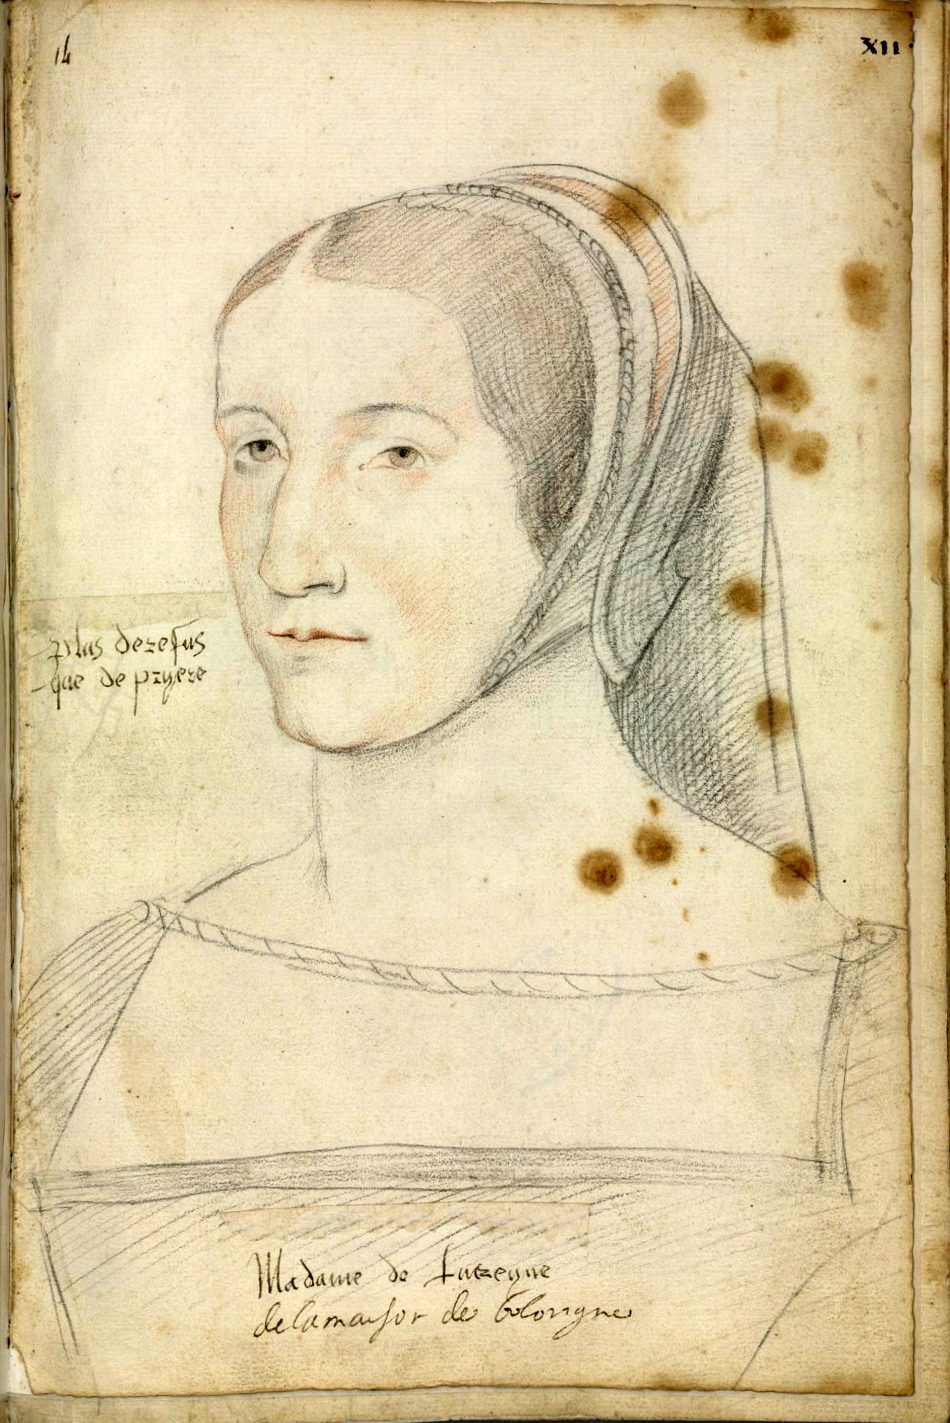 14
XII
plus de refus
que de pryere
Madame de
de la maison de bolongne